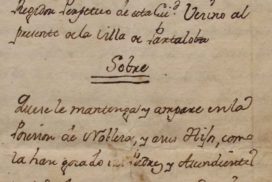 Regidor Perpetuo de esta Ciu.d Vecino al
presente de la Villa de
Sobre
Que se le mantenga y ampare en la
Posesion de Nobleza, y a sus Hijos, como
la han gozado su Padre, y Ascendientes